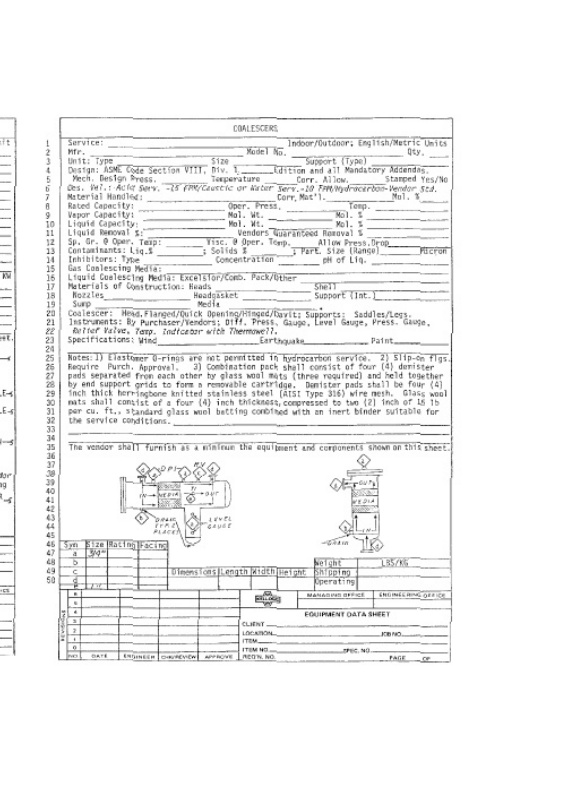 COALESCERS
1 Service: Indoor/Outdoor; English/Metric Units
2 Mfr. Model No. Qty.
3 Unit: Type Size Support (Type)
4 Design: ASME Code Section VIII, Div. 1 Edition and all Mandatory Addendas.
5 Mech. Design Press. Temperature Corr. Allow. Stamped Yes/No
6 Des. Vel.: Acid Serv. -15 FPM/Caustic or Water Serv.-10 FPM/Hydrocarbon-Vendor Std.
7 Material Handled: Corr. Mat'l. Mol. %
8 Rated Capacity: Oper. Press. Temp.
9 Vapor Capacity: Mol. Wt. Mol. %
10 Liquid Capacity: Mol. Wt. Mol. %
11 Liquid Removal %: Vendors Guaranteed Removal %
12 Sp. Gr. @ Oper. Temp: Visc. @ Oper. Temp. Allow Press.Drop
13 Contaminants: Liq.% ; Solids % ; Part. Size (Range) Micron
14 Inhibitors: Type Concentration pH of Liq.
15 Gas Coalescing Media:
16 Liquid Coalescing Media: Excelsior/Comb. Pack/Other
17 Materials of Construction: Heads Shell
18 Nozzles Headgasket Support (Int.)
19 Sump Media
20 Coalescer: Head,Flanged/Quick Opening/Hinged/Davit; Supports: Saddles/Legs.
21 Instruments: By Purchaser/Vendors; Diff. Press. Gauge, Level Gauge, Press. Gauge,
22 Relief Valve, Temp. Indicator with Thermowell.
23 Specifications: Wind Earthquake Paint
24
25 Notes: 1) Elastomer O-rings are not permitted in hydrocarbon service. 2) Slip-on flgs.
26 Require Purch. Approval. 3) Combination pack shall consist of four (4) demister
27 pads separated from each other by glass wool mats (three required) and held together
28 by end support grids to form a removable cartridge. Demister pads shall be four (4)
29 inch thick herringbone knitted stainless steel (AISI Type 316) wire mesh. Glass wool
30 mats shall consist of a four (4) inch thickness, compressed to two (2) inch of 15 lb
31 per cu. ft., standard glass wool batting combined with an inert binder suitable for
32 the service conditions.
33
34
35 The vendor shall furnish as a minimum the equipment and components shown on this sheet.
36
37 DPI RV
38
39 OUT
40 IN MEDIA TI OUT
41 MEDIA
42 DRAIN LEVEL
43 TYP 2 GAUGE
44 PLACES IN
45 DRAIN
46 Sym Size Rating Facing
47 a 3/4"
48 b Weight LBS/KG
49 c Dimensions Length Width Height Shipping
50 d Operating
e
KELLOGG MANAGING OFFICE ENGINEERING OFFICE
EQUIPMENT DATA SHEET
CLIENT
LOCATION JOB NO.
ITEM
ITEM NO. SPEC. NO.
REQ'N. NO. PAGE OF
REVISIONS
6
5
4
3
2
1
0
NO. DATE ENGINEER CHK/REVIEW APPROVE